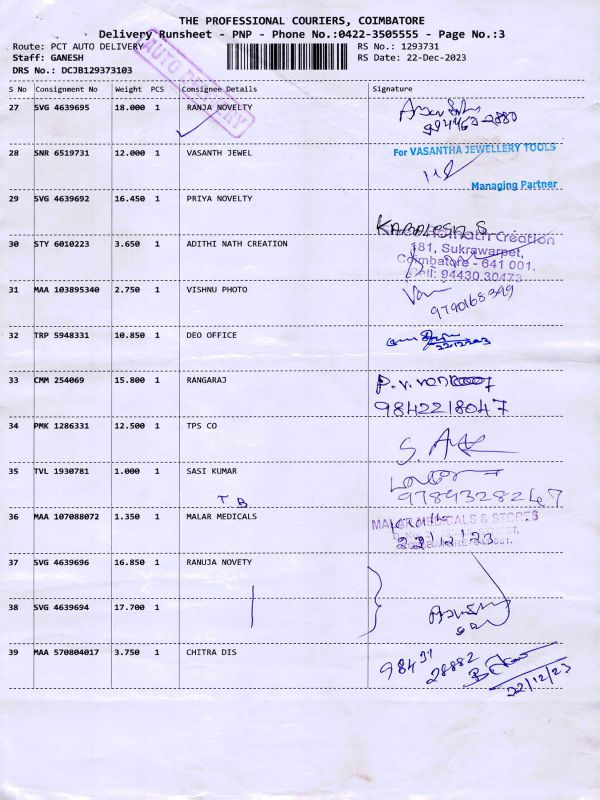 THE PROFESSIONAL COURIERS, COIMBATORE
Delivery Runsheet - PNP - Phone No.:0422-3505555 - Page No.:3
Route: PCT AUTO DELIVERY RS No.: 1293731
Staff: GANESH RS Date: 22-Dec-2023
DRS No.: DCJB129373103
AUTO DELIVERY
S No Consignment No Weight PCS Consignee Details Signature
27 SVG 4639695 18.000 1 RANJA NOVELTY
28 SNR 6519731 12.000 1 VASANTH JEWEL For VASANTHA JEWELLERY TOOLS
Managing Partner
29 SVG 4639692 16.450 1 PRIYA NOVELTY
30 STY 6010223 3.650 1 ADITHI NATH CREATION
Creation
181, Sukrawarpet,
Coimbatore - 641 001.
Cell: 94430 30473
31 MAA 103895340 2.750 1 VISHNU PHOTO
9790168349
32 TRP 5948331 10.850 1 DEO OFFICE
33 CMM 254069 15.800 1 RANGARAJ
9842218047
34 PMK 1286331 12.500 1 TPS CO
35 TVL 1930781 1.000 1 SASI KUMAR
9789328247
T B
36 MAA 107088072 1.350 1 MALAR MEDICALS MALAR MEDICALS & STORES
22/12/23
37 SVG 4639696 16.850 1 RANUJA NOVETY
38 SVG 4639694 17.700 1
39 MAA 570804017 3.750 1 CHITRA DIS 98431
28882
22/12/23